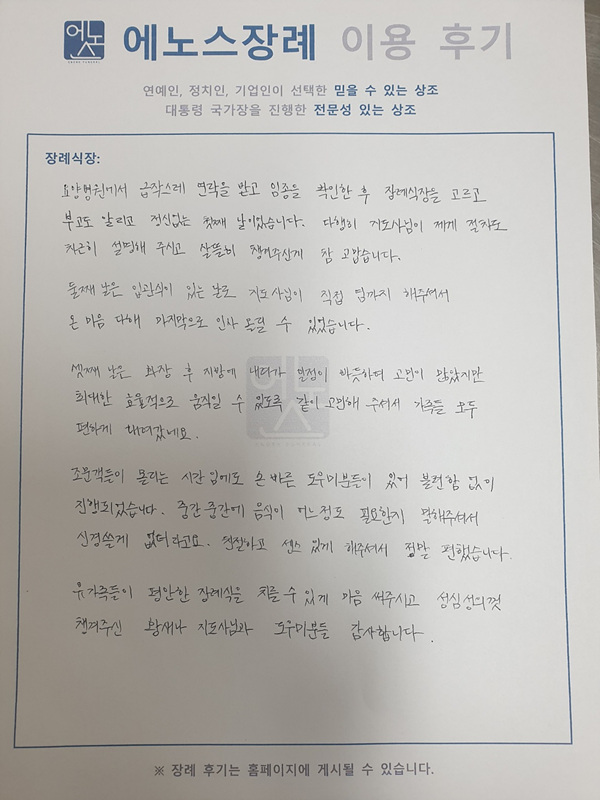 에노스
ENOTH FUNERAL
에노스장례 이용 후기
연예인, 정치인, 기업인이 선택한 믿을 수 있는 상조
대통령 국가장을 진행한 전문성 있는 상조
장례식장:
요양병원에서 급작스레 연락을 받고 임종을 확인한 후 장례식장을 고르고
부고도 알리고 정신없는 첫째 날이었습니다. 다행히 지도사님이 제게 절차도
차근히 설명해 주시고 살뜰히 챙겨주신게 참 고맙습니다.
둘째 날은 입관식이 있는 날로 지도사님이 직접 염까지 해주셔서
온 마음 다해 마지막으로 인사 올릴 수 있었습니다.
셋째 날은 화장 후 지방에 내려가 일정이 빠듯하여 고민이 많았지만
최대한 효율적으로 움직일 수 있도록 같이 고민해 주셔서 가족들 모두
편하게 내려갔네요.
조문객들이 몰리는 시간 입에도 손 빠른 도우미분들이 있어 불편함 없이
진행되었습니다. 중간중간에 음식이 어느정도 필요한지 말해주셔서
신경쓸게 없더라고요. 친절하고 센스 있게 해주셔서 정말 편했습니다.
유가족들이 평안한 장례식을 치를 수 있게 마음 써주시고 성심성의껏
챙겨주신 황새나 지도사님과 도우미분들 감사합니다.
※ 장례 후기는 홈페이지에 게시될 수 있습니다.